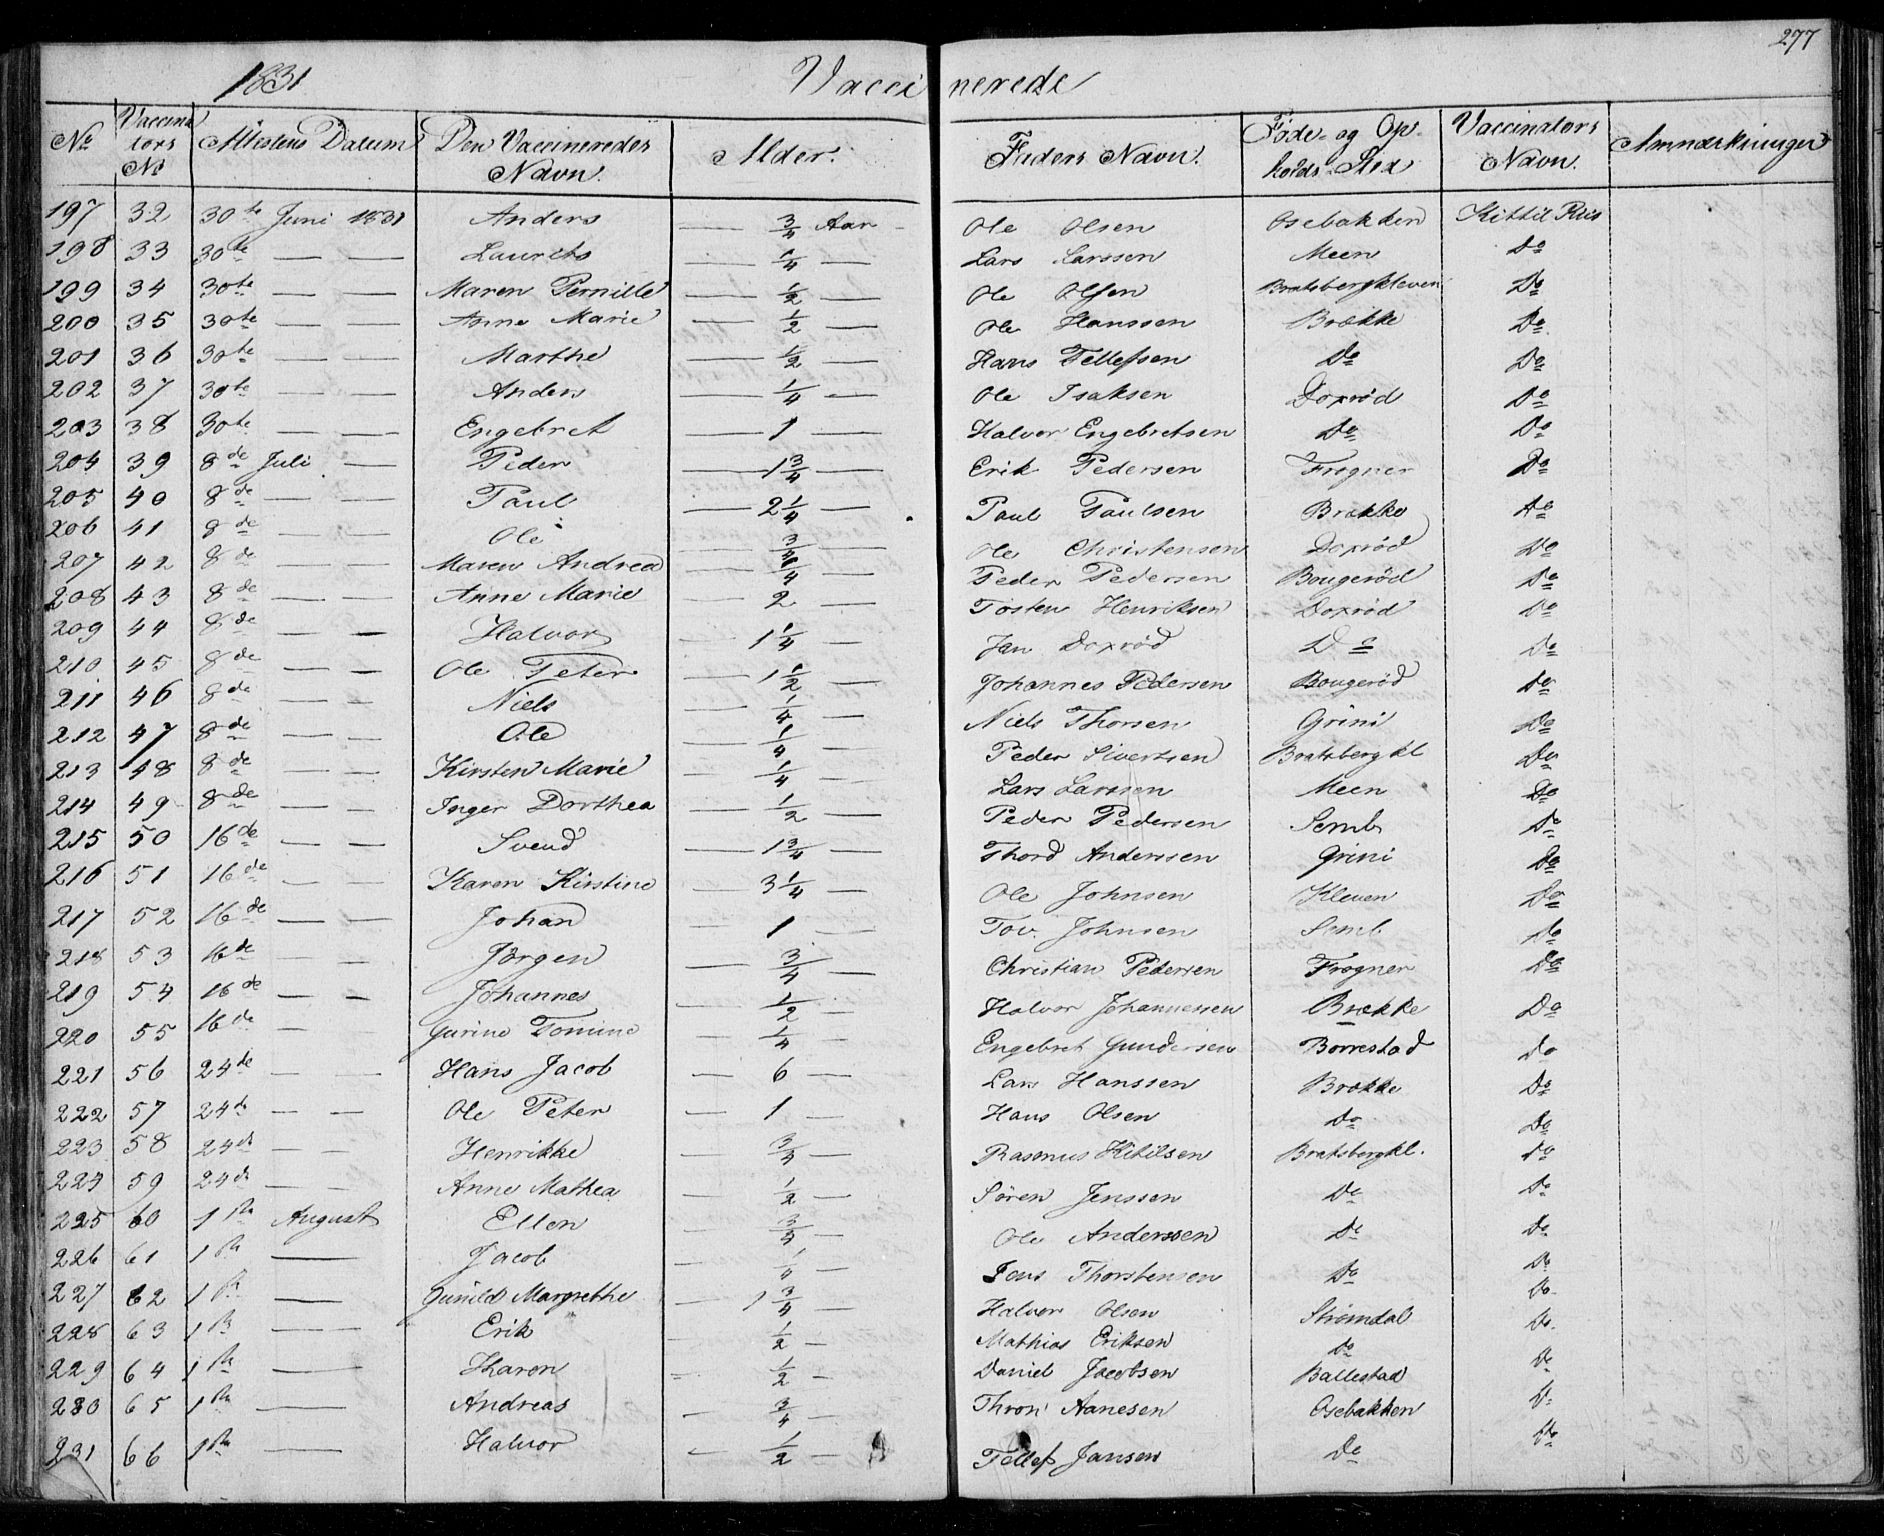 277
1831 Vaccinerede
No | Vaccinators No | Attestens Datum | Den Vaccineredes Navn. | Alder. | Faders Navn. | Føde- og Opholds-Sted | Vaccinators Navn. | Anmærkninger
197 32 30te Juni 1831 Anders — 3/4 Aar Ole Olsen Osebakken Kittil Riis
198 33 30te — — Laurits — 1/4 — Lars Larssen Meen Do
199 34 30te — — Maren Pernille — 1/2 — Ole Olsen Bratsbergkleven Do
200 35 30te — — Anne Marie — 1/2 — Ole Hanssen Brække Do
201 36 30te — — Marthe — 1/2 — Hans Tellefsen Do Do
202 37 30te — — Anders — 1/4 — Ole Isaksen Doxrød Do
203 38 30te — — Engebret — 1 — Halvor Engebretsen Do Do
204 39 8de Juli — Peder — 1 3/4 — Erik Pedersen Frogner Do
205 40 8de — — Paul — 2 1/4 — Paul Paulsen Brække Do
206 41 8de — — Ole — 3/4 — Ole Christensen Doxrød Do
207 42 8de — — Maren Andrea — 1/4 — Peder Pedersen Bougerød Do
208 43 8de — — Anne Marie — 2 — Tosten Henriksen Doxrød Do
209 44 8de — — Halvor — 1 1/4 — Jan Doxrød Do Do
210 45 8de — — Ole Peter — 1 1/2 — Johannes Pedersen Bougerød Do
211 46 8de — — Niels — 1/4 — Niels Thorsen Grini Do
212 47 8de — — Ole — 1/4 — Peder Sivertsen Bratsbergkl Do
213 48 8de — — Kirsten Marie — 1/4 — Lars Larssen Meen Do
214 49 8de — — Inger Dorthea — 1/2 — Peder Pedersen Semb Do
215 50 16de — — Svend — 1 3/4 — Thord Anderssen Grini Do
216 51 16de — — Karen Kirstine — 3 1/4 — Ole Johnsen Kleven Do
217 52 16de — — Johan — 1 — Tov. Johnsen Semb Do
218 53 16de — — Jørgen — 3/4 — Christian Pedersen Frogner Do
219 54 16de — — Johannes — 1/2 — Halvor Johannessen Brække Do
220 55 16de — Gurine Tomine — 1/4 — Engebret Gundersen Borrestad Do
221 56 24de — — Hans Jacob — 6 — Lars Hanssen Brække Do
222 57 24de — — Ole Peter — 1 — Hans Olsen Do Do
223 58 24de — — Henrikke — 3/4 — Rasmus Kitilsen Bratsbergkl. Do
224 59 24de — — Anne Mathea — 1/2 — Søren Jenssen Do Do
225 60 1ste August Ellen — 3/4 — Ole Anderssen Do Do
226 61 1ste — Jacob — 1/4 — Jens Thorstensen Do Do
227 62 1ste — Gunild Margrethe — 1 3/4 — Halvor Olsen Strømdal Do
228 63 1ste — Erik — 1/2 — Mathias Eriksen Do Do
229 64 1ste — Karen — 1/2 — Daniel Jacobsen Ballestad Do
230 65 1ste — Andreas — 3/4 — Thron Aanesen Osebakken Do
231 66 1ste — Halvor — 1/2 — Tellef Jansen Do Do